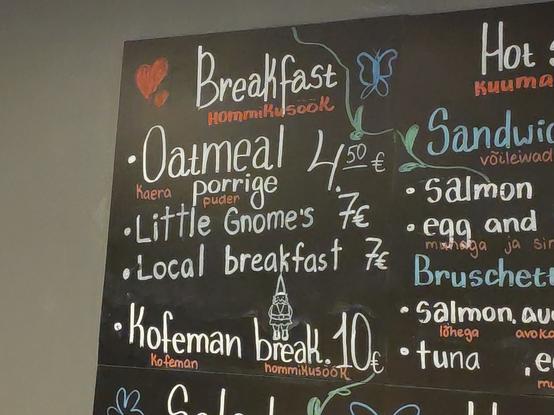 Breakfast
Hommikusöök
• Oatmeal 4.50 €
Kaera porrige
puder
• Little Gnome's 7€
• Local breakfast 7€
• Kofeman break. 10€
Kofeman hommikusöök
Hot
Kuuma
Sandwic
võileiwad
• Salmon
• egg and
munaga ja sir
Bruschett
• Salmon, avo
lõhega avoka
• tuna , e
mu